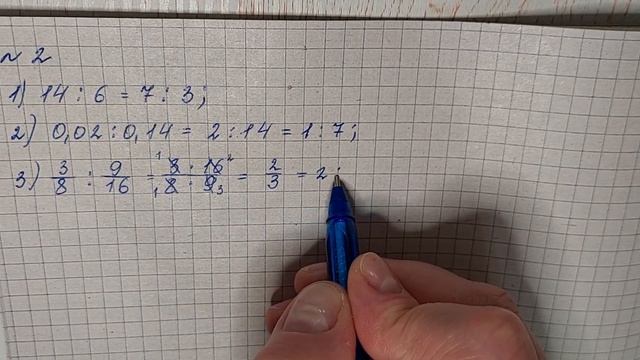 № 2
1) 14 : 6 = 7 : 3;
2) 0,02 : 0,14 = 2 : 14 = 1 : 7;
3) 3/8 : 9/16 = 3 · 16/8 · 9 = 2/3 = 2 :